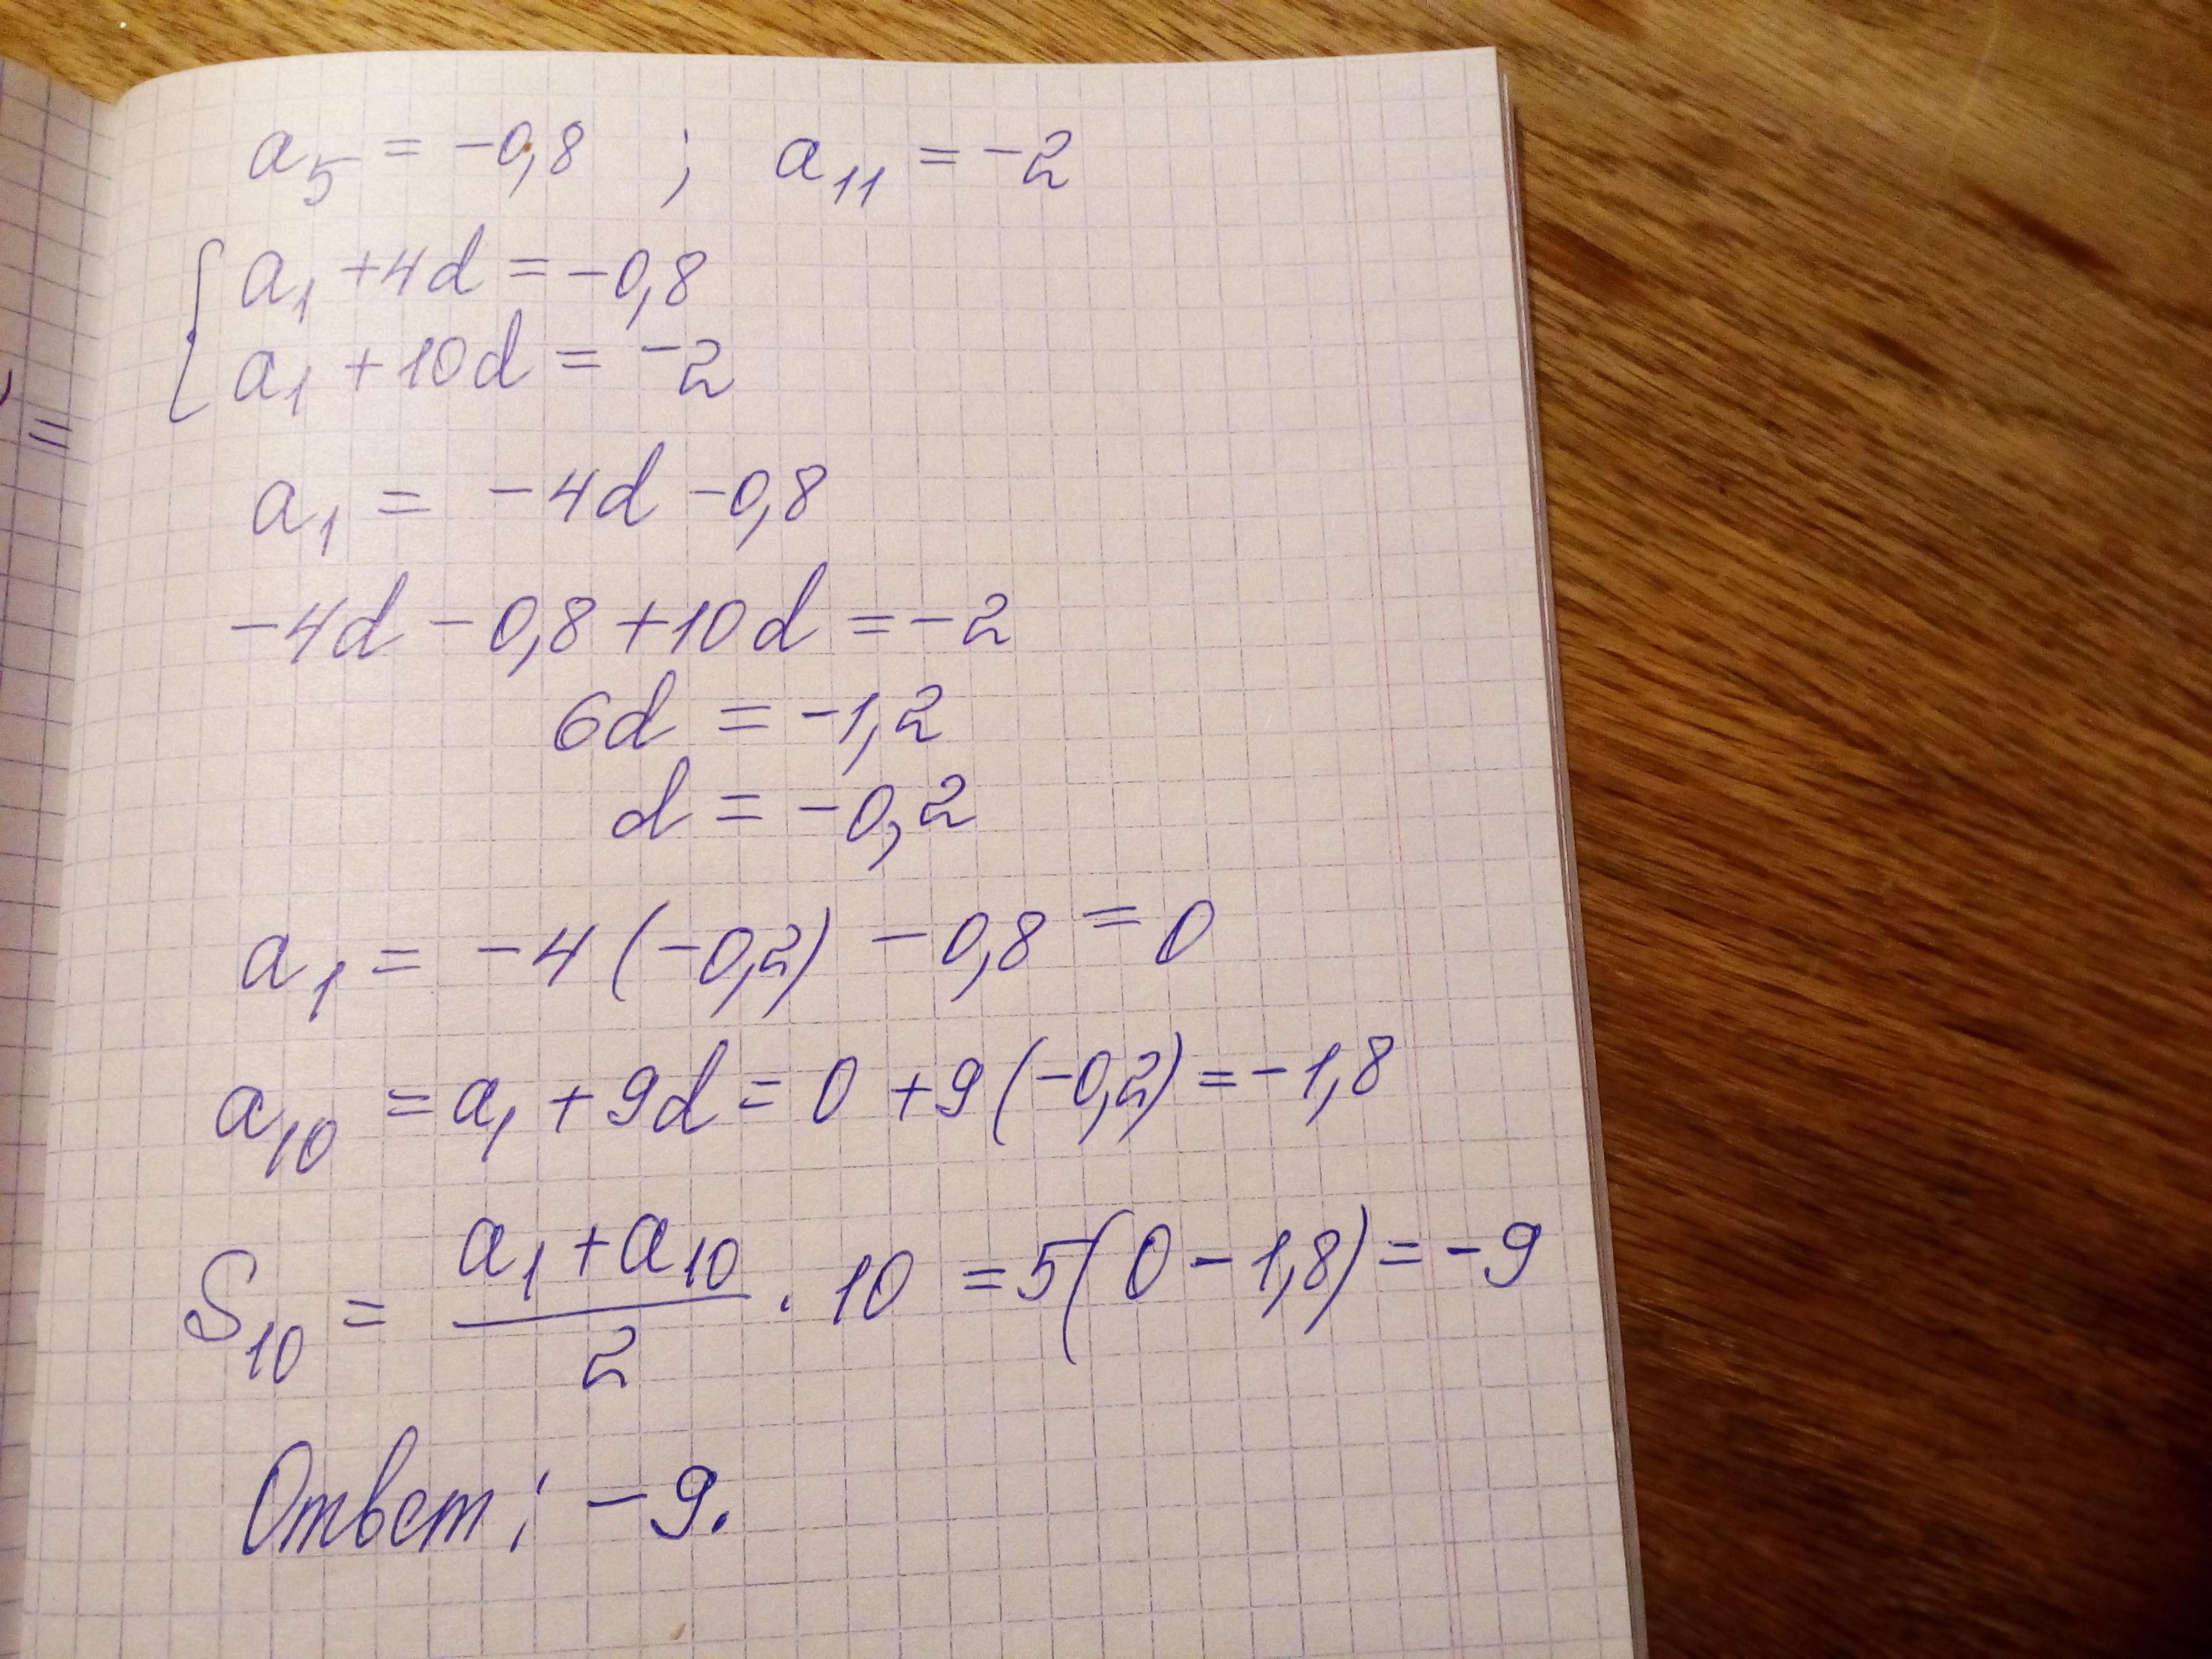 a₅ = -0,8 ; a₁₁ = -2
{ a₁ + 4d = -0,8
a₁ + 10d = -2
a₁ = -4d - 0,8
-4d - 0,8 + 10d = -2
6d = -1,2
d = -0,2
a₁ = -4(-0,2) - 0,8 = 0
a₁₀ = a₁ + 9d = 0 + 9(-0,2) = -1,8
S₁₀ = (a₁ + a₁₀)/2 · 10 = 5(0 - 1,8) = -9
Ответ: -9.